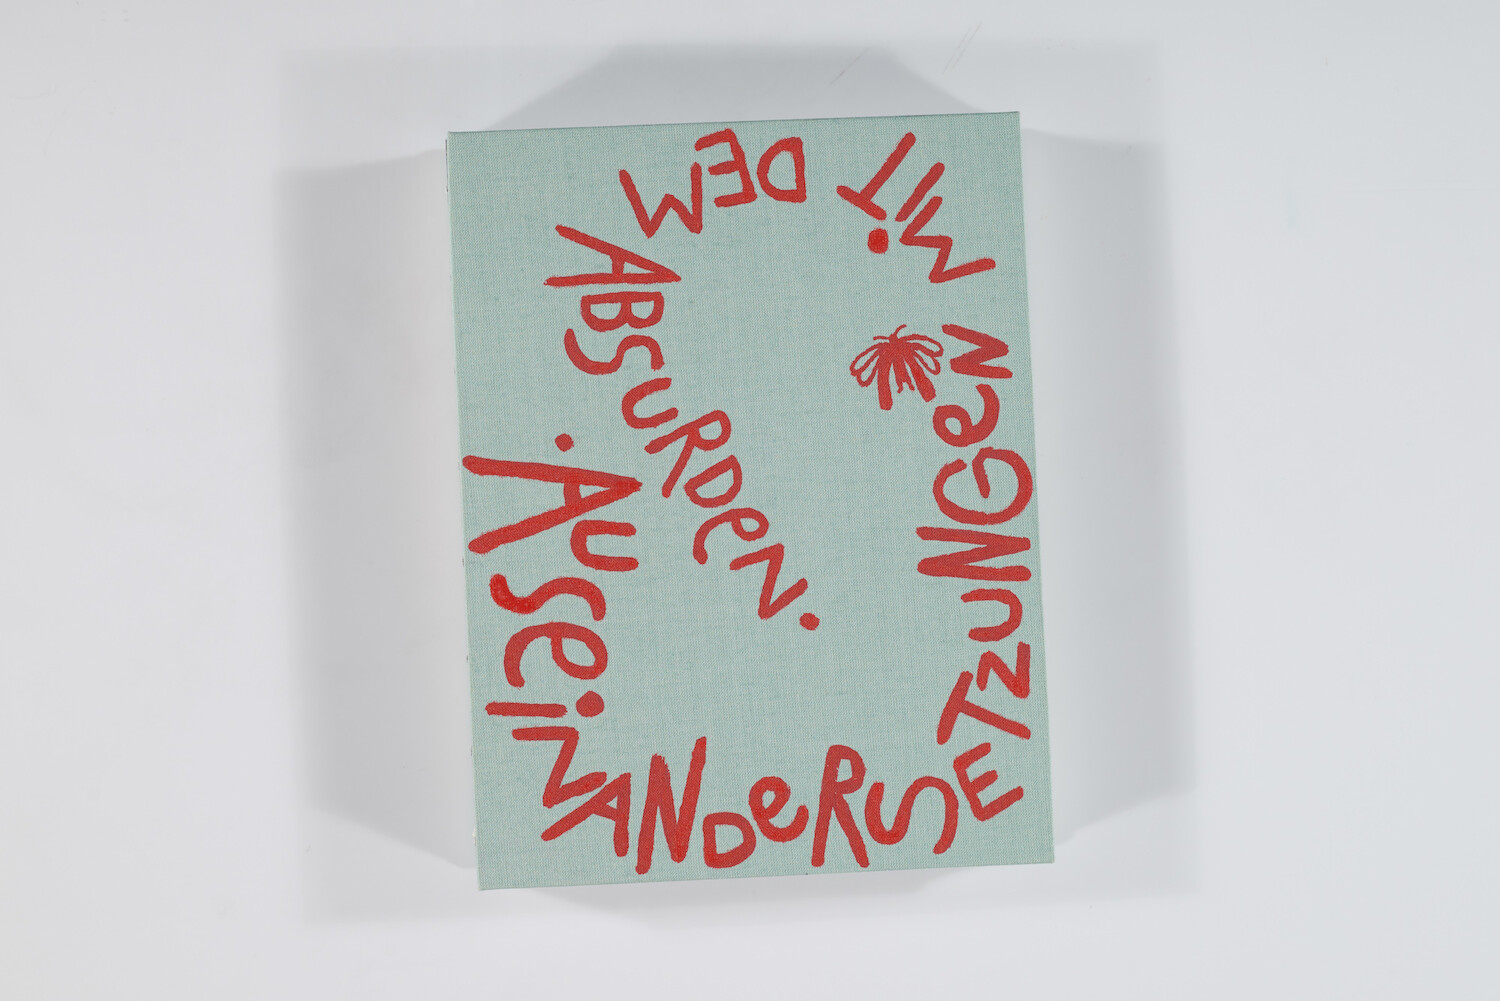 .AUSeiNANDeRSETZUNGeN
MiT
DEM
ABSURDEN.